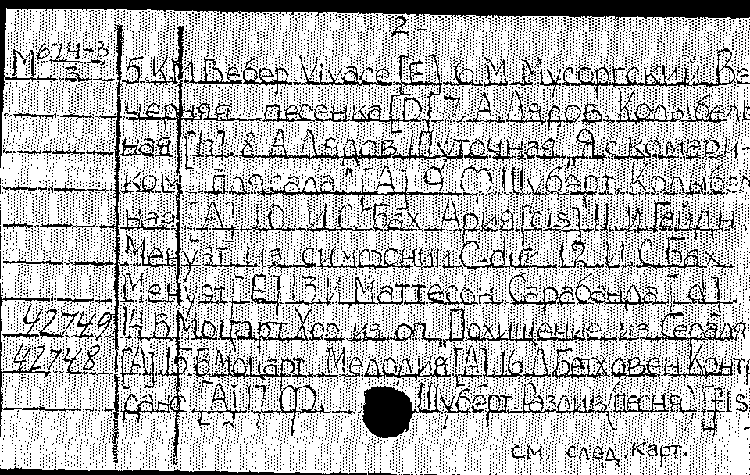 2
М 674-3/3 5. К.М. Вебер. Vivace [E] 6. М. Мусоргский. Ве-
черняя песенка [D] 7. А. Лядов. Колыбель-
ная 8. А. Лядов. Шуточная "Я с комари-
ком плясала" [A] 9. Ф. Шуберт. Колыбель-
ная [A] 10. И.С. Бах. Ария [cis] 11. И. Гайдн.
Менуэт из симфонии C-dur 12. И.С. Бах.
Менуэт [E] 13. И. Маттесон. Сарабанда [d]
42749 14. В. Моцарт. Хор из оп. "Похищение из Сераля"
42748 [A] 15. В. Моцарт. Мелодия [A] 16. Л. Бетховен. Контр-
данс [A] 17. Ф. Шуберт. Розлив (песня) [Fis
см. след. карт.